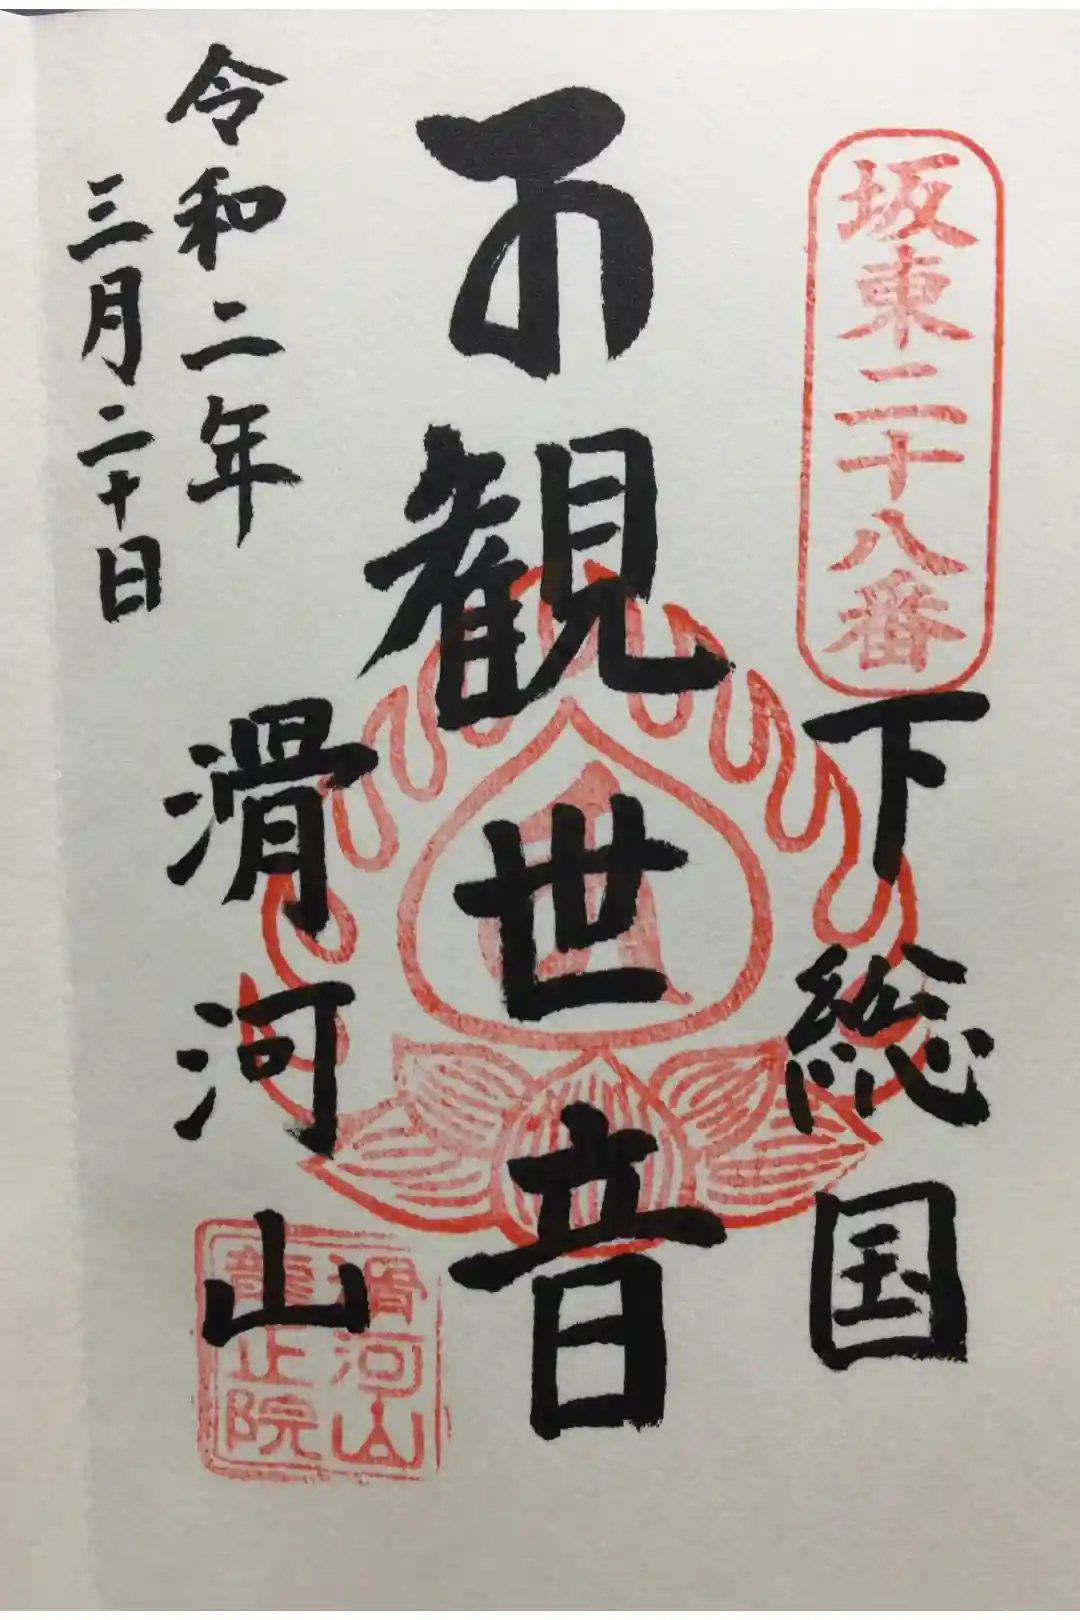 坂東二十八番
下総国
観世音
滑河山
令和二年
三月二十日
滑河山
龍正院